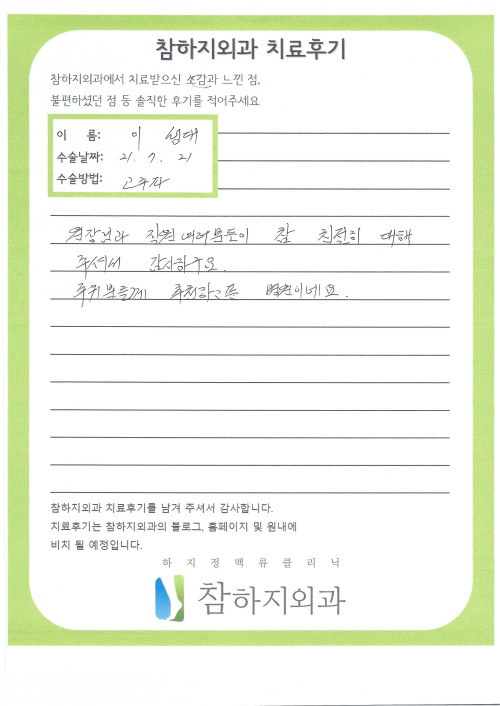 참하지외과 치료후기
참하지외과에서 치료받으신 소감과 느낀 점,
불편하셨던 점 등 솔직한 후기를 적어주세요
이 름: 이
수술날짜: 21. 7. 21
수술방법: 고주파
원장님과 직원 여러분들이 참 친절히 대해
주셔서 감사하구요.
주위분들께 추천하고픈 병원이네요.
참하지외과 치료후기를 남겨 주셔서 감사합니다.
치료후기는 참하지외과의 블로그, 홈페이지 및 원내에
비치 될 예정입니다.
하지정맥류클리닉
참하지외과